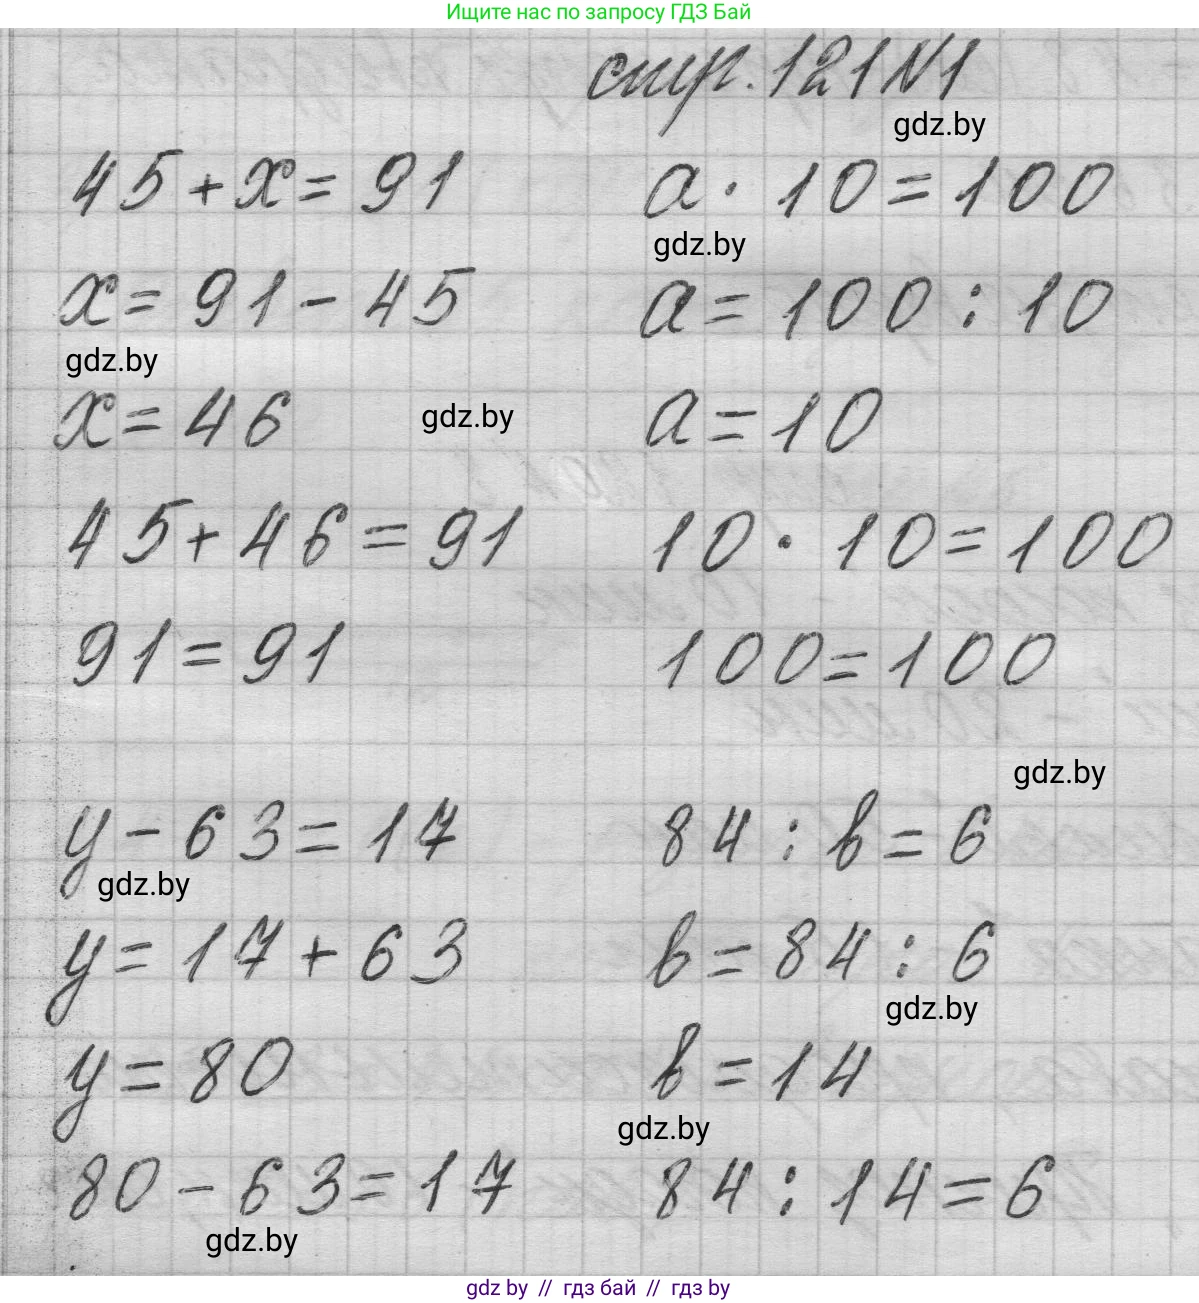 Ищите нас по запросу ГДЗ Бай
стр. 121 N1
gdz.by
45 + x = 91
x = 91 - 45
gdz.by
x = 46
gdz.by
45 + 46 = 91
91 = 91
a · 10 = 100
gdz.by
a = 100 : 10
a = 10
10 · 10 = 100
100 = 100
gdz.by
y - 63 = 17
gdz.by
y = 17 + 63
y = 80
80 - 63 = 17
gdz.by
84 : в = 6
в = 84 : 6
gdz.by
в = 14
gdz.by
84 : 14 = 6
gdz by // гдз бай // гдз by